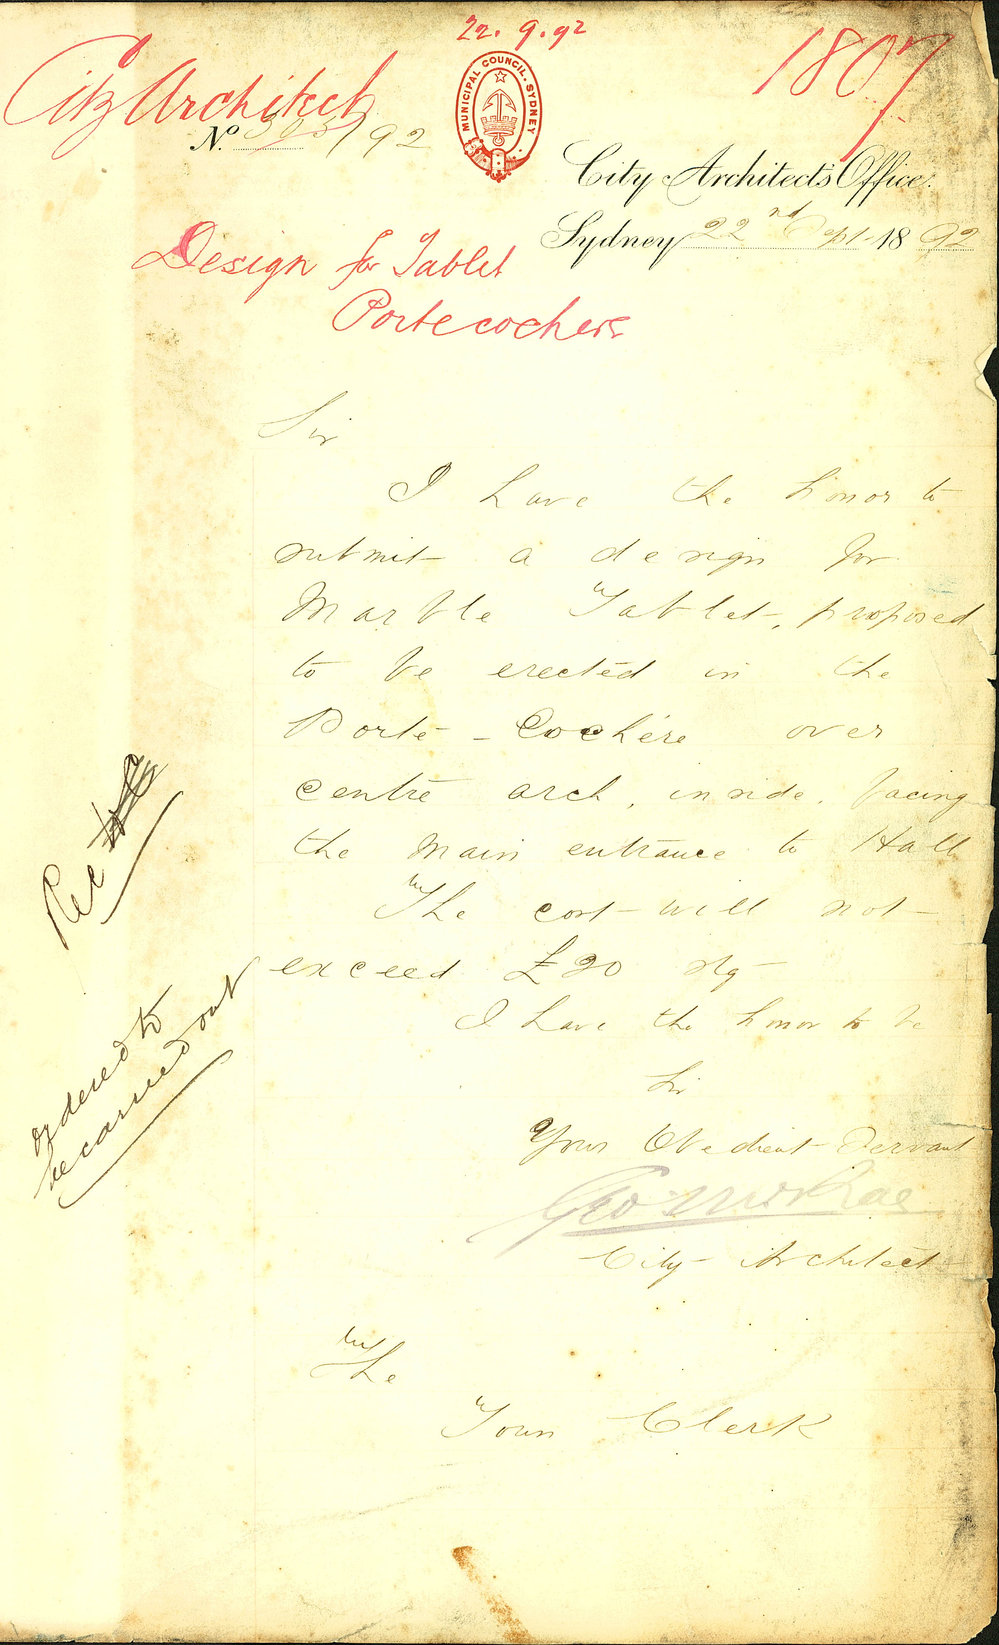 22.9.92
City Architect
1807
MUNICIPAL COUNCIL. SYDNEY
No. 92
City Architect's Office.
Sydney 22nd Sept 1892
Design for Tablet
Porte cochere
Sir
I have the honor to
submit a design for
Marble Tablet, proposed
to be erected in the
Porte-Cochère over
centre arch, inside, facing
the main entrance to Hall
The cost will not
exceed £20 stg
I have the honor to be
Sir
Your Obedient Servant
Geo McRae
City Architect
The
Town Clerk
Rec
ordered to
be carried out